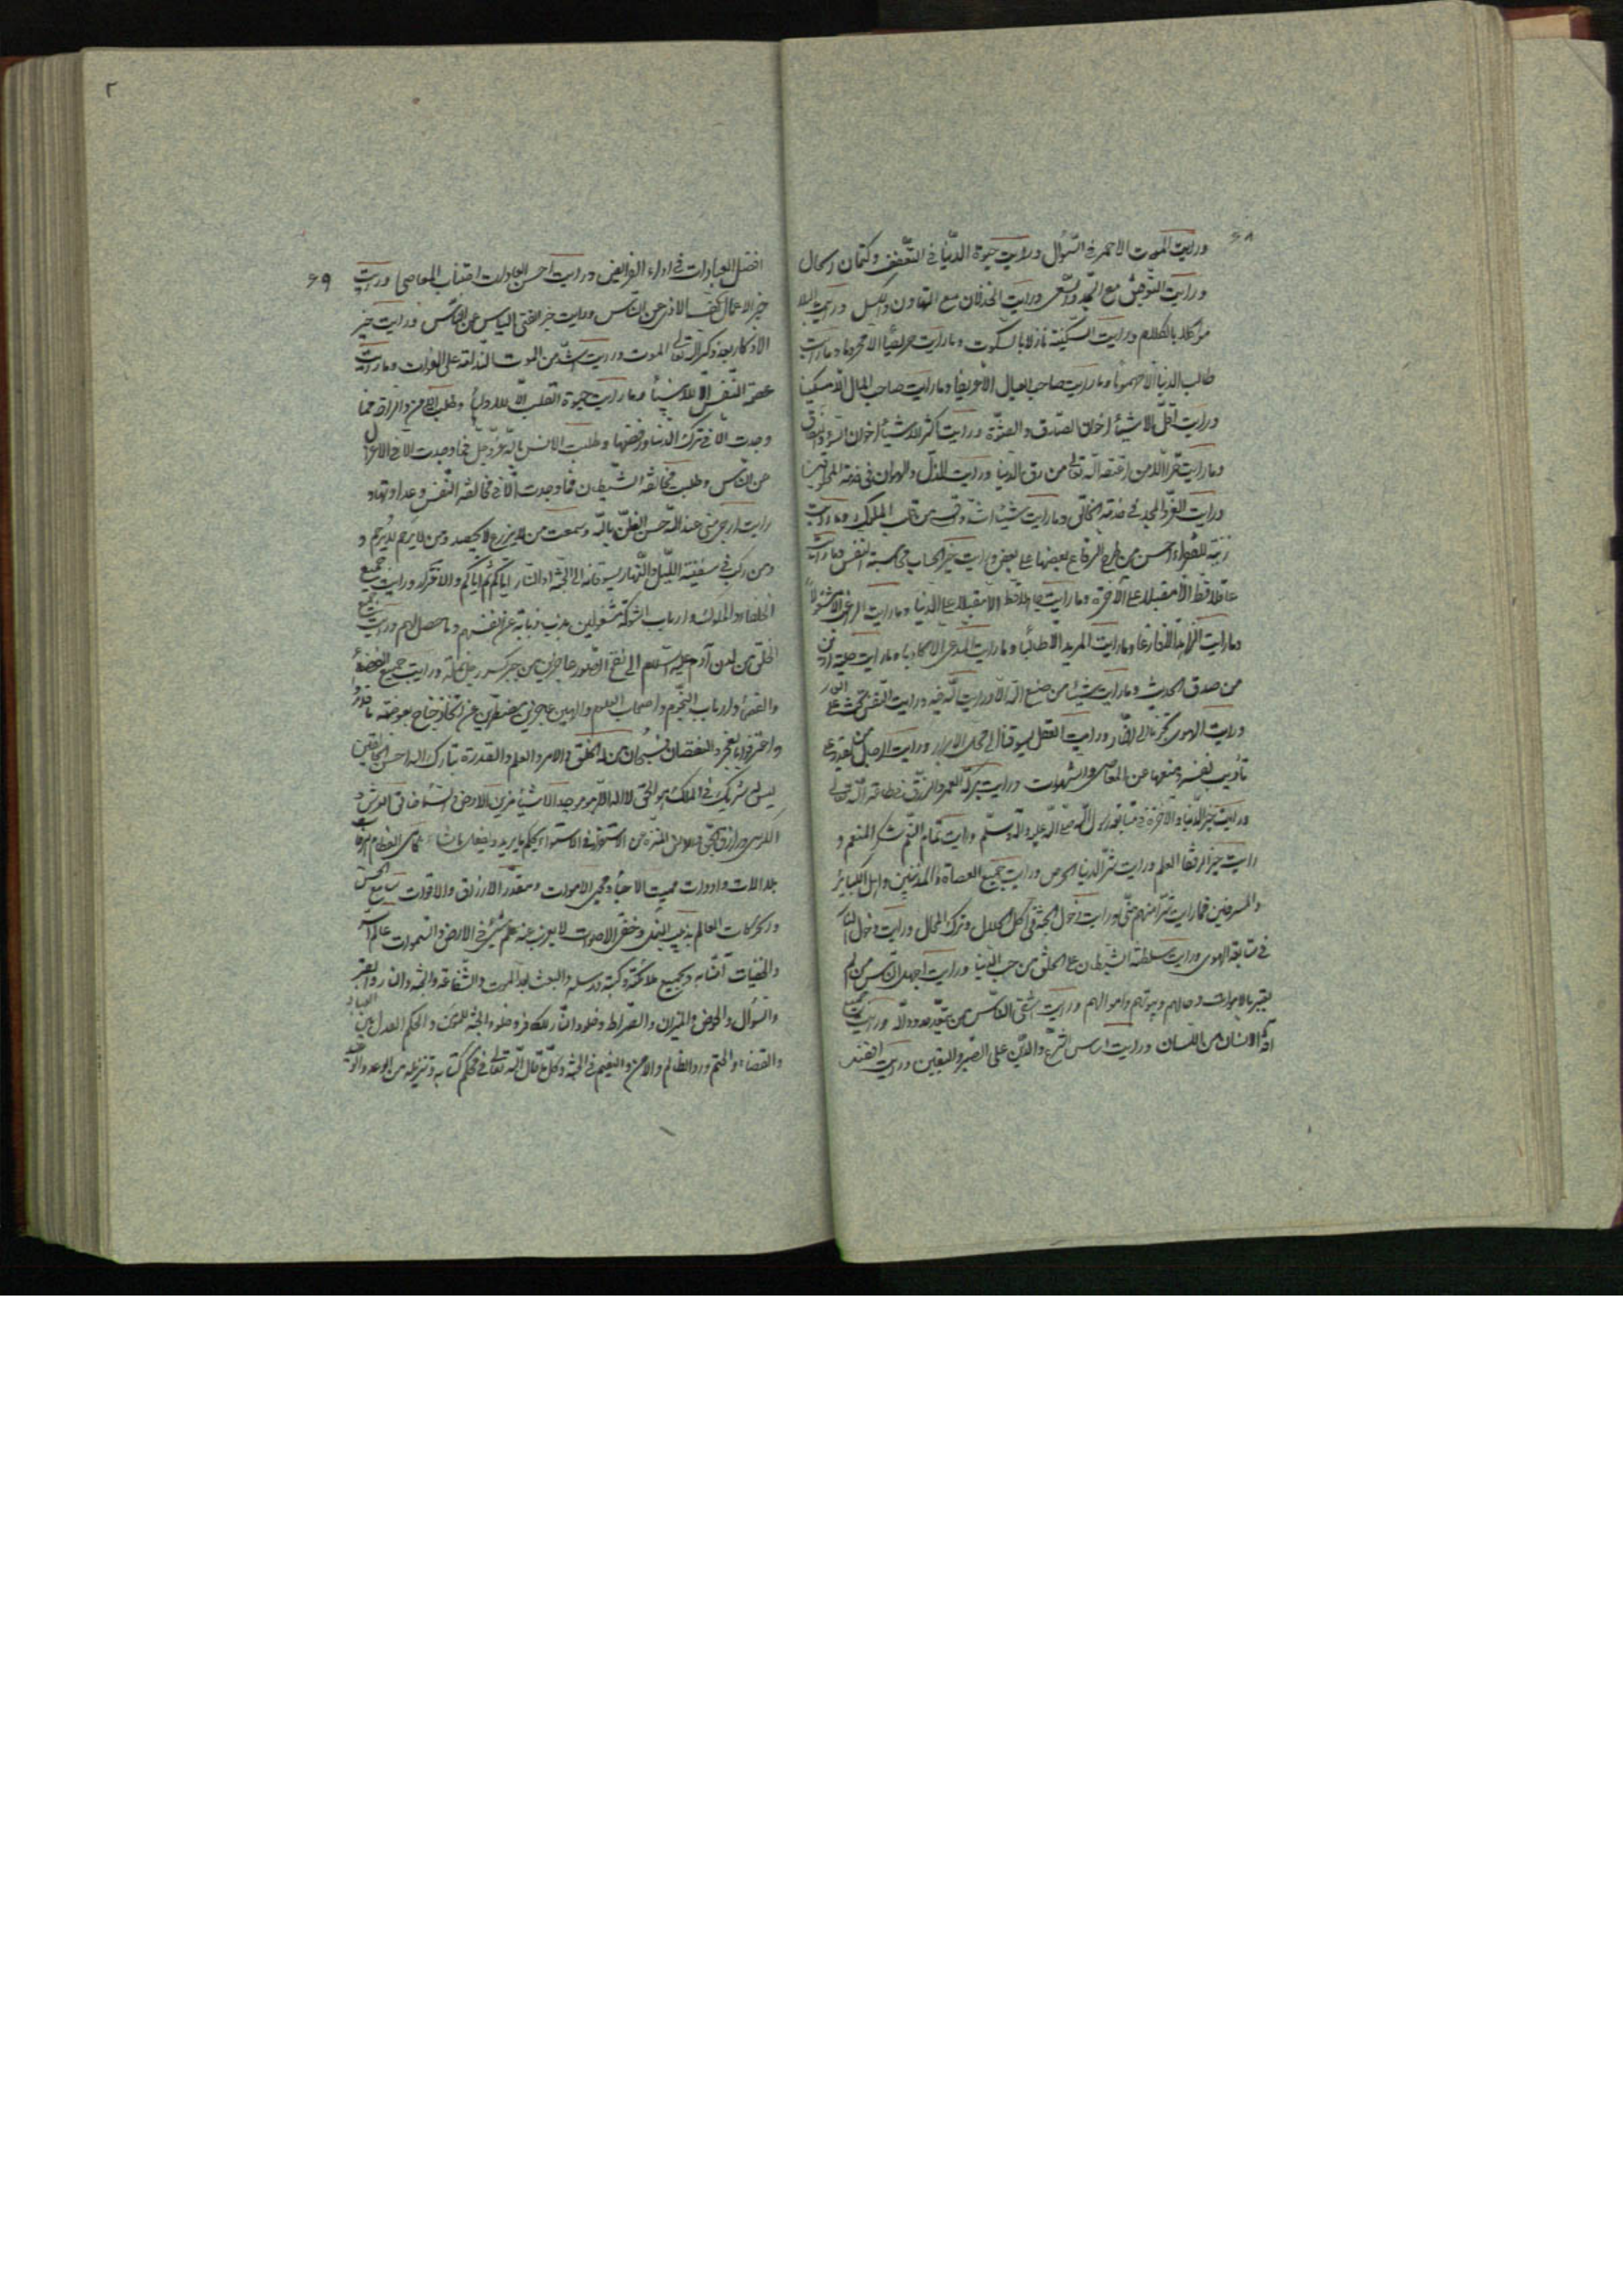 ۶۸
ورایت الموت الاحمر فی السّؤال ورایت حیوة الدّنیا فی التعفّف وکتمان الحال
ورایت التوفیق مع الجدّ والسّعی ورایت الخذلان مع التهاون والکسل ورایت البلا
موکلا بالکلام ورایت السکینة نازلا بالسکوت وما رایت حریصًا الا محروما وما رایت
طالب الدنیا الا مهموما وما رایت صاحب العیال الا و ما رایت صاحب المال الا مسکینا
ورایت اقلّ الاشیاء اخوان الصّدق والعشرة ورایت اکثر الاشیاء اخوان السوء والنفاق
وما رایت حرّا الّا من اعتقه الله تعالی من رق الدّنیا ورایت الذلّ والهوان فی خدمة المخلوقین
ورایت العزّ والمجد فی خدمة الخالق وما رایت شیئا اشدّ من قلب الملوک وما رایت
زینة للفقراء احسن من الرقاع بعضها علی بعض ورایت خیر الحساب محاسبة النفس وما رایت
عاقلا قط الّا مقبلا علی الآخرة وما رایت جاهلا قط الا مقبلا علی الدّنیا وما رایت
وما رایت الزاهد الّا فارغا وما رایت المرید الا طالبا وما رایت المدعی الا کاذبا وما رایت
من صدق الحدیث وما رایت شیئا من صنع الله الا ورایت الله فیه ورایت النفس
ورایت الهوی تجرّنا الی النّار ورایت العقل یسوقنا الی محل الابرار ورایت الرجل من یقدر علی
تأدیب نفسه ومنعها عن المعاصی والشهوات ورایت برکة العمر والرّزق فی طاعة الله تعالی
ورایت خیر الدّنیا والآخرة فی متابعة رسول الله صلی الله علیه وآله وسلّم ورایت تمام النّعم شکر المنعم و
رایت خیر الرفقا العلم ورایت شرّ الدنیا الحرص ورایت جمیع العصاة والمذنبین واهل الکبائر
والمسرفین فما رایت شرّا منهم منّی ورایت دخول الجنّة فی اکل الحلال وترک المحال ورایت دخول النّار
فی متابعة الهوی ورایت سلطنة الشیطان علی الخلق من حب الدّنیا ورایت اجهد النّاس من لم
یعتبر بالاموات وحالهم وبیوتهم واموالهم ورایت اشقی النّاس من ورایت جمیع
آفة الانسان من اللّسان ورایت اساس الشرع والدّین علی الصّبر والیقین ورایت
۶۹
افضل العبادات فی اداء الفرایض ورایت احسن العبادات اجتناب المعاصی ورایت
خیر الاعمال کفّ الاذی عن النّاس ورایت خیر الغنی الیاس عن النّاس ورایت خیر
الاذکار بعد ذکر الله تعالی الموت ورایت اشدّ من الموت الندامة علی الفوات وما رایت
عصمة النّفس الّا للانبیاء وما رایت حیوة القلب الا للاولیاء وطلبت الامن والراحة فما
وجدت الّا فی ترک الدّنیا ورفضها وطلبت الانس بالله عزّ وجلّ فما وجدت الا فی الاعتزال
عن النّاس وطلبت مخالفة الشّیطان فما وجدت الّا فی مخالفة النّفس وعداوتها و
رایت ارجی منی عند الله حسن الظنّ بالله وسمعت من لا یزرع لا یحصد ومن لا یَرحم لا یُرحم و
ومن رکب فی سفینة اللّیل والنّهار یسوقانه الی الجنّة او النّار ایّاکم ثم ایّاکم والاغترار ورایت جمیع
الخلفاء والملوک وارباب الشوکة مشغولین عن انفسهم وما حصل لهم ورایت جمیع
الخلق من لدن آدم علیه السّلام الی نفخ الصّور عاجزین من جبر کسر رجل نملة ورایت جمیع
وارباب النّجوم واصحاب العلوم عاجزین مضطرّین عن اتخاذ جناح بعوضة
واعترفوا بالعجز والنقصان فسبحان من له الخلق والامر والعلم والقدرة تبارک الله احسن الخالقین
لیس له شریک فی الملک هو الحیّ لا اله الا هو موجد الاشیاء مزین الارض والسّماء خالق العرش و
الکرسی ورازق المنزّه من الاستقرار والاستواء یحکم ما یرید ویفعل ما یشاء
بلا آلات وادوات ممیت الاحیاء ومحیی الاموات ومقدر الارزاق والاقوات سامع
وحرکات العالم بدبیب النمل وخفیّ الاصوات لا یعزب عنه علم شیئ فی الارض والسّموات عالم السّر
والخفیات آمنّا به وبجمیع ملائکته وکتبه ورسله والبعث بعد الموت والشّفاعة والجنّة والنار والقبر
والسّؤال والحوض والمیزان والصّراط وخلود النّار للکافر وخلود الجنّة للمؤمن والحکم العدل بین العباد
والقضاء والختم ورد الظالم والامن والنعیم فی الجنّة وکلّ ما قال الله تعالی فی محکم کتابه وتنزیله من الوعد والوعید